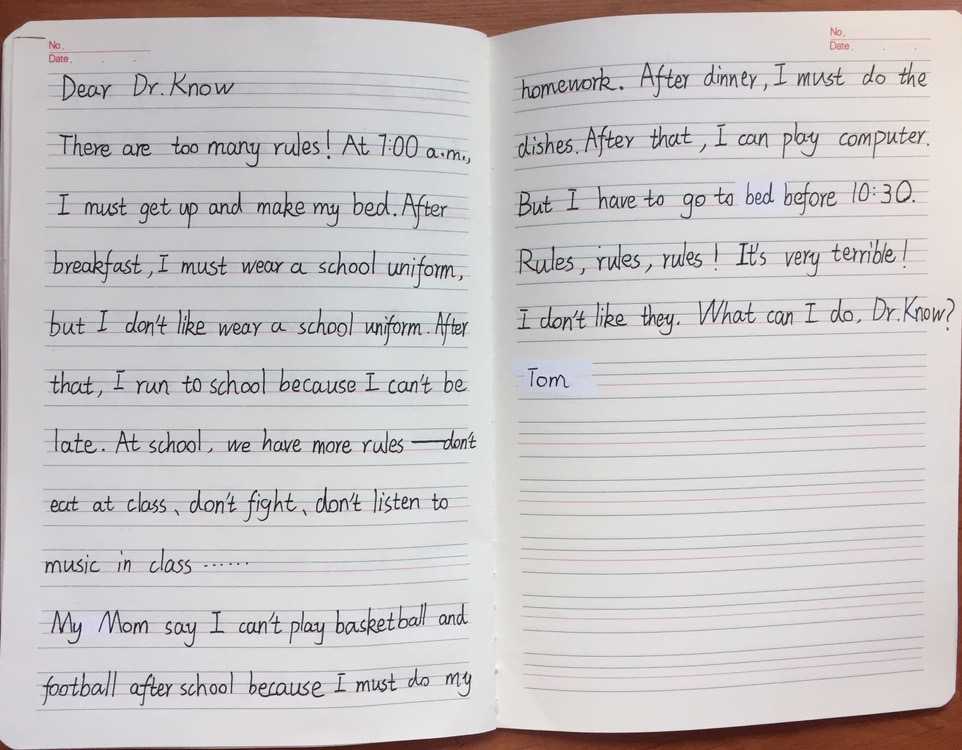 No.
Date.
Dear Dr. Know
There are too many rules! At 7:00 a.m.,
I must get up and make my bed. After
breakfast, I must wear a school uniform,
but I don't like wear a school uniform. After
that, I run to school because I can't be
late. At school, we have more rules —don't
eat at class、don't fight、don't listen to
music in class ······
My Mom say I can't play basketball and
football after school because I must do my
No.
Date.
homework. After dinner, I must do the
dishes. After that, I can play computer.
But I have to go to bed before 10:30.
Rules, rules, rules! It's very terrible!
I don't like they. What can I do, Dr. Know?
Tom